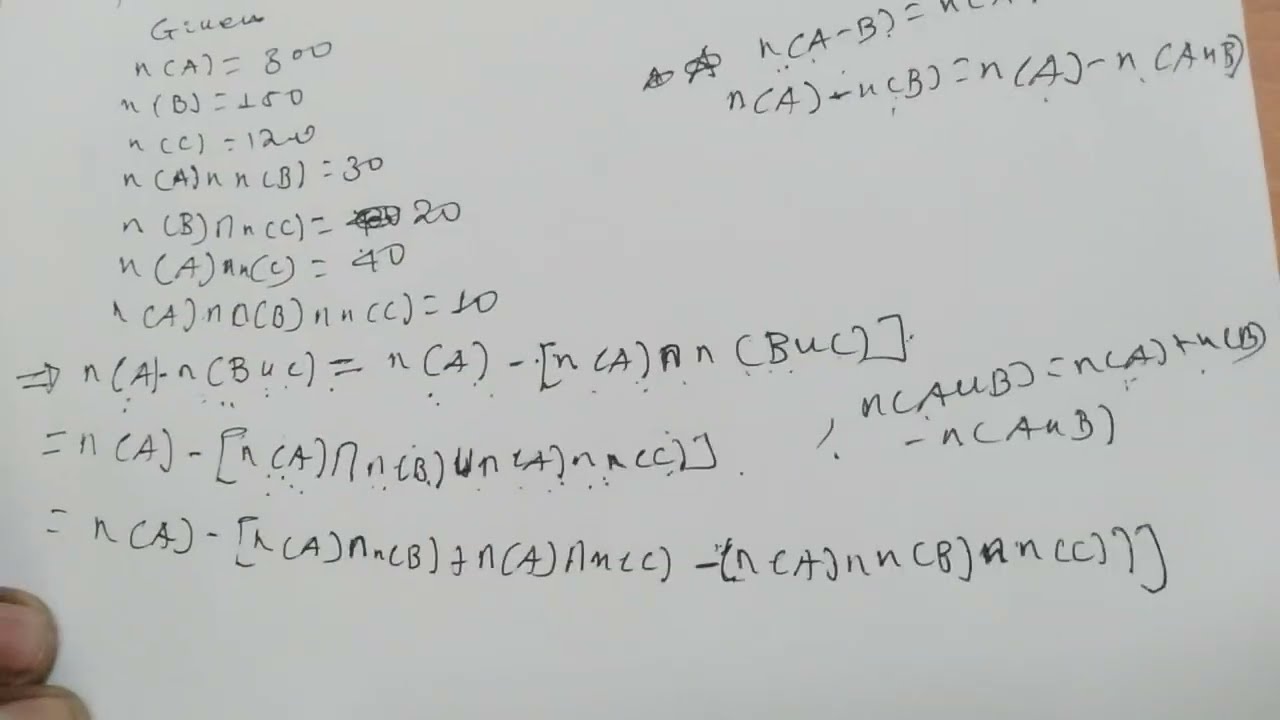 Given
n(A) = 300
n(B) = 150
n(C) = 120
n(A)∩n(B) = 30
n(B)∩n(C) = 20
n(A)∩n(C) = 40
n(A)∩n(B)∩n(C) = 10
n(A-B) = n(A
n(A) - n(B) = n(A) - n(A∩B)
⇒ n(A)-n(B∪C) = n(A) - [n(A)∩n(B∪C)]
= n(A) - [n(A)∩n(B)∪n(A)∩n(C)]
n(A∪B) = n(A)+n(B)
- n(A∩B)
= n(A) - [n(A)∩n(B)+n(A)∩n(C) - {n(A)∩n(B)∩n(C)}]